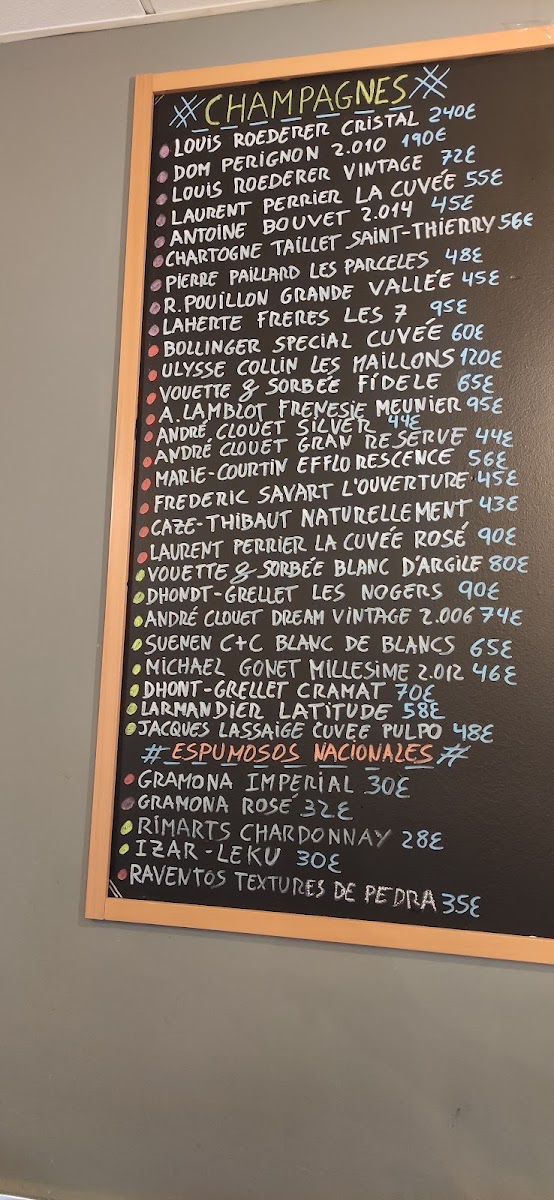 CHAMPAGNES
LOUIS ROEDERER CRISTAL 240€
DOM PERIGNON 2.010 190€
LOUIS ROEDERER VINTAGE 72€
LAURENT PERRIER LA CUVÉE 55€
ANTOINE BOUVET 2.014 45€
CHARTOGNE TAILLET SAINT-THIERRY 56€
PIERRE PAILLARD LES PARCELES 48€
R. POUILLON GRANDE VALLÉE 45€
LAHERTE FRERES LES 7 95€
BOLLINGER SPECIAL CUVÉE 60€
ULYSSE COLLIN LES MAILLONS 120€
VOUETTE & SORBÉE FÍDELE 65€
A. LAMBLOT FRENESIE MEUNIER 95€
ANDRÉ CLOUET SILVER 44€
ANDRÉ CLOUET GRAN RESERVE 44€
MARIE-COURTIN EFFLORESCENCE 56€
FREDERIC SAVART L'OUVERTURE 45€
CAZE-THIBAUT NATURELLEMENT 43€
LAURENT PERRIER LA CUVÉE ROSÉ 90€
VOUETTE & SORBÉE BLANC D'ARGILE 80€
DHONDT-GRELLET LES NOGERS 90€
ANDRÉ CLOUET DREAM VINTAGE 2.006 74€
SUENEN C+C BLANC DE BLANCS 65€
MICHAEL GONET MILLESIME 2.012 46€
DHONT-GRELLET CRAMAT 70€
LARMANDIER LATITUDE 58€
JACQUES LASSAIGE CUVEE PULPO 48€
# ESPUMOSOS NACIONALES #
GRAMONA IMPERIAL 30€
GRAMONA ROSÉ 32€
RIMARTS CHARDONNAY 28€
IZAR-LEKU 30€
RAVENTOS TEXTURES DE PEDRA 35€